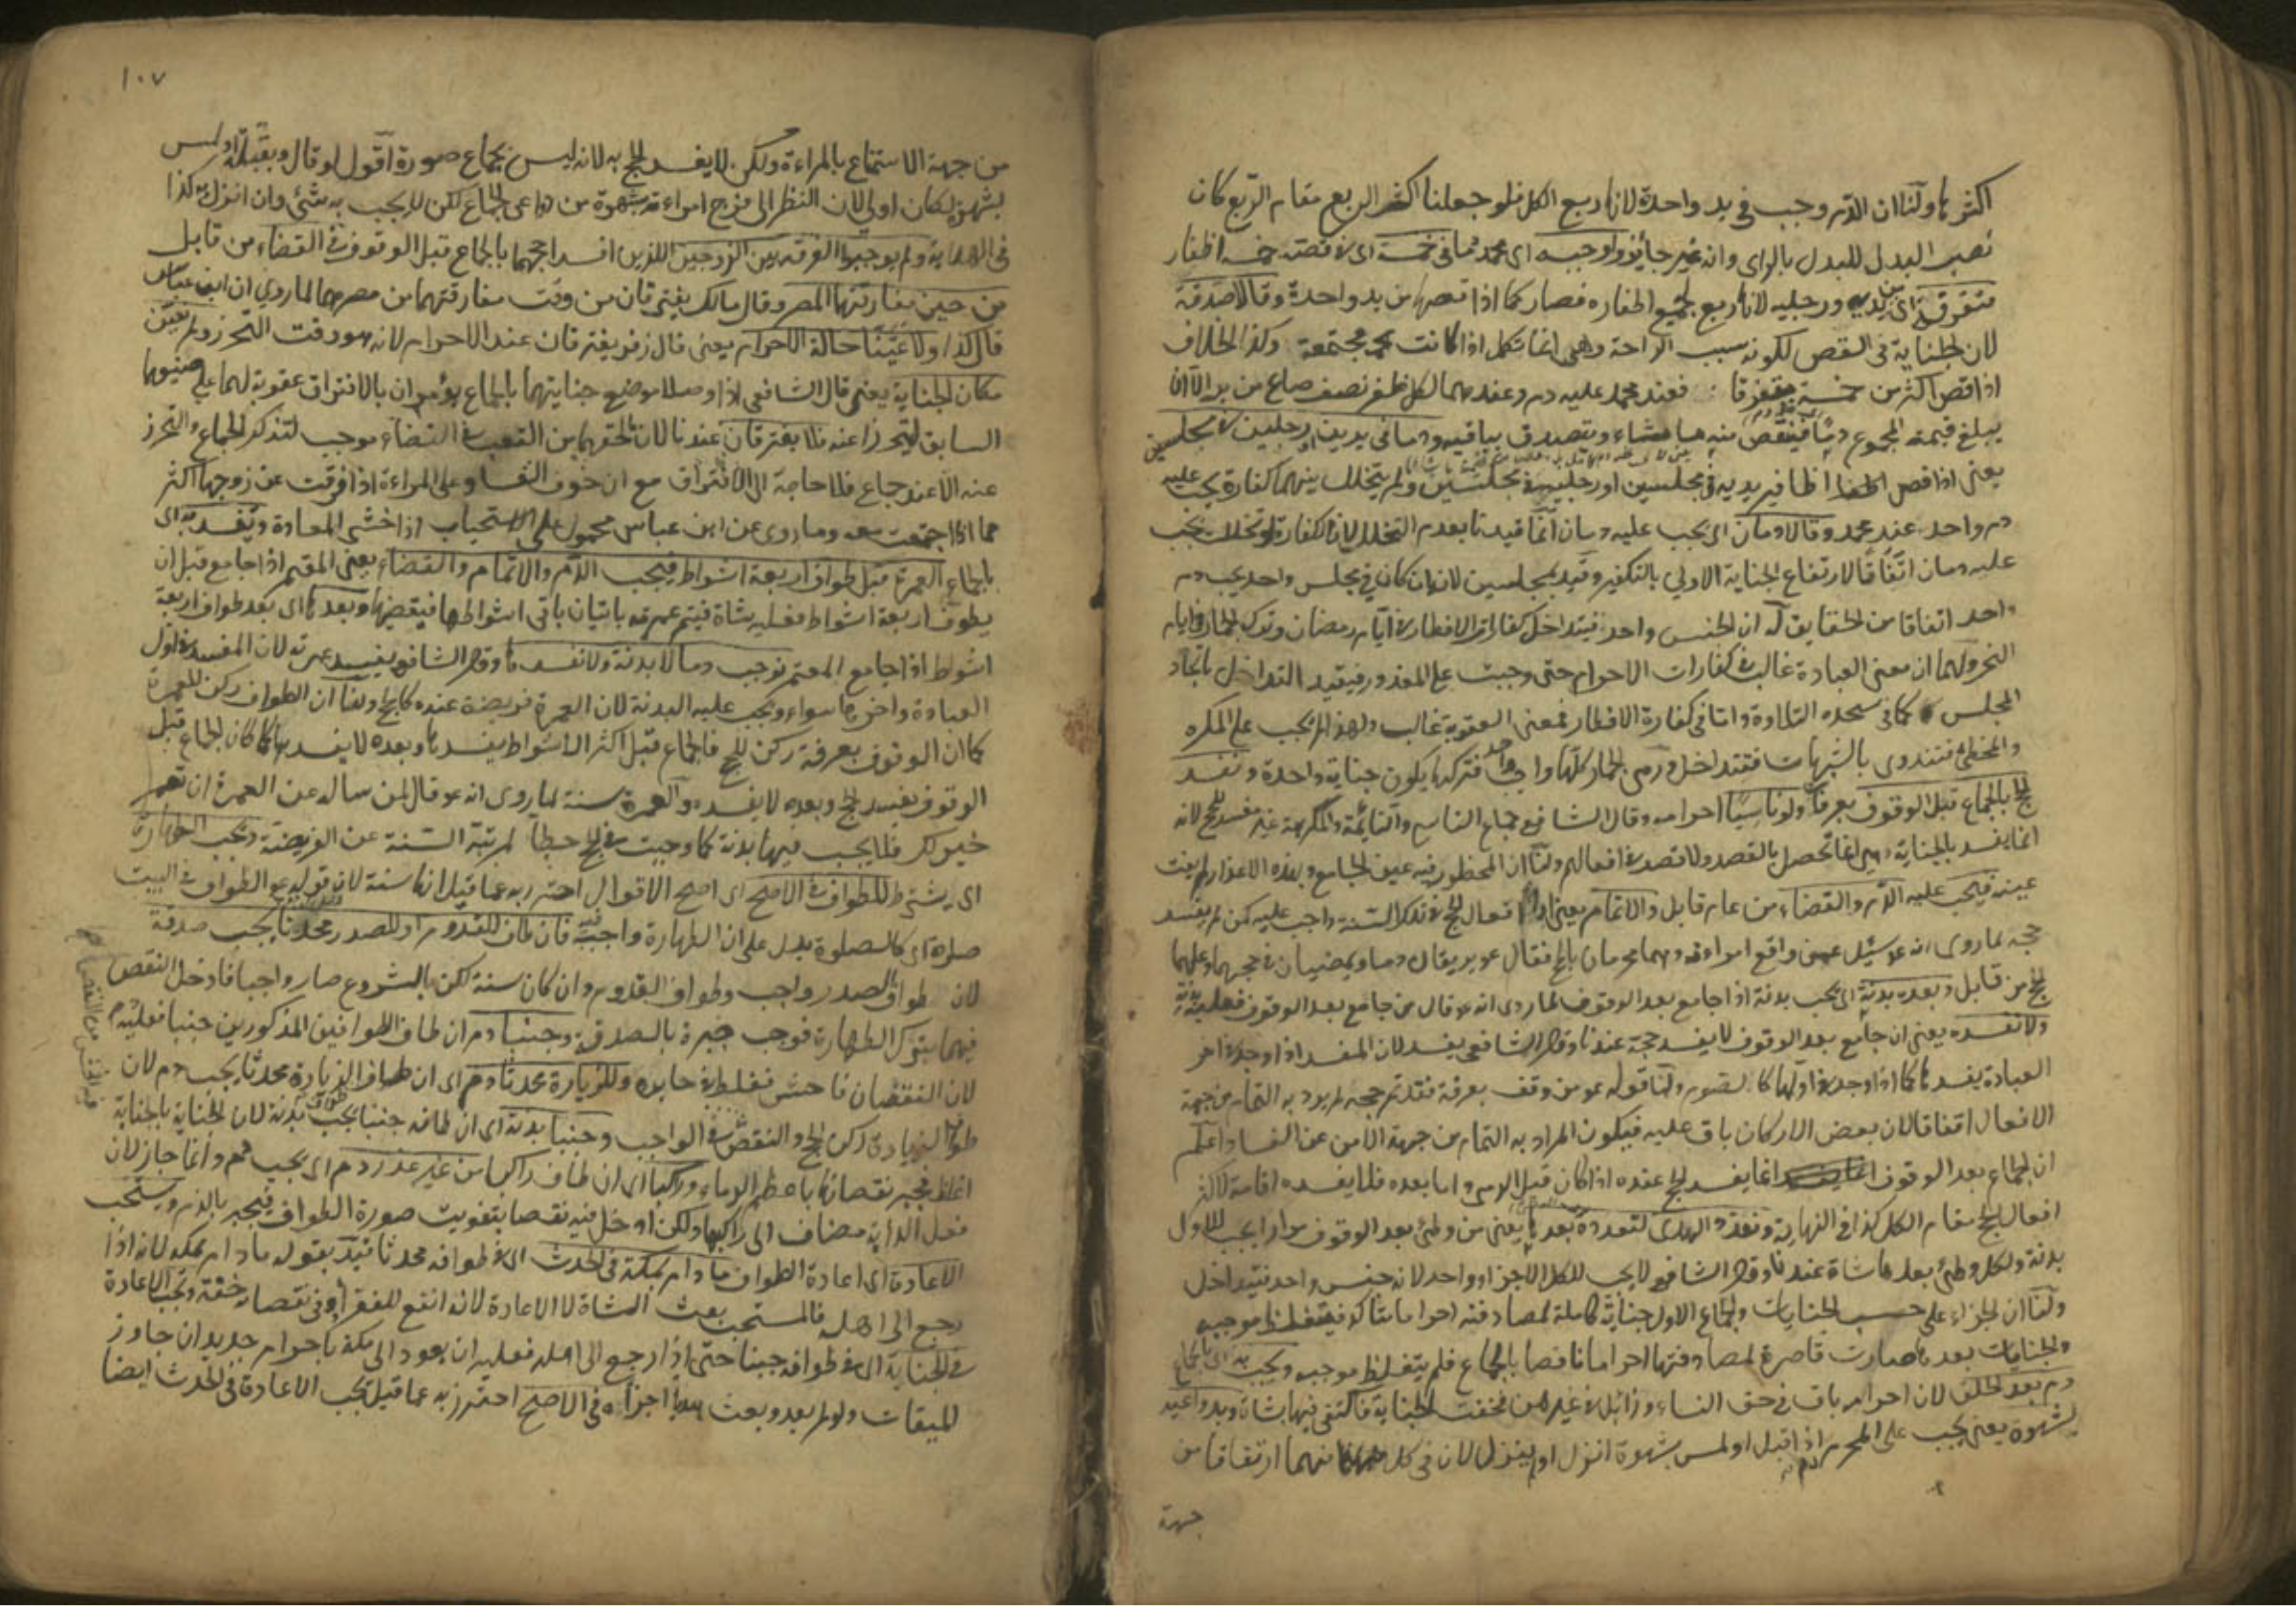 اكثرها ولنا ان الدم وجب في يد واحدة لانها ربع الكل فلو جعلنا اكثر الربع مقام الربع كان
نصب البدل للبدل بالراى وانه غير جايز ولو جبه اى محمد دما في خمسة اى في قصة خمسة اظفار
متفرقة اى من يديه ورجليه لانها ربع لجميع اظفاره فصار كما اذا قصها من يد واحدة وقالا صدقة
لان الجناية في القص لكونه سبب الراحة وهى انما تكمل اذا كانت مجتمعة وكذا الخلاف
اذا قص اكثر من خمسة متفرقا فعند محمد عليه دم وعندهما لكل ظفر نصف صاع من بر الا ان
يبلغ قيمة المجموع دما فينقص منه ما شاء ويتصدق بباقيه ودما في يدين او رجلين في مجلسين
يعنى اذا قص اظافير يديه في مجلسين او رجليه في مجلسين ولم يتخلل بينهما كفارة يجب عليه
دم واحد عند محمد وقالا دمان اى يجب عليه دمان انما قيدنا بعدم التخلل لان الكفارة لو تخللت يجب
عليه دمان اتفاقا لارتفاع الجناية الاولى بالتكفير وقيد بمجلسين لانه ان كان في مجلس واحد يجب دم
واحد اتفاقا من الحقايق له ان الجنس واحد فيتداخل ككفارات الافطار في ايام رمضان وترك الجمار في ايام
النحر ولهما ان معنى العبادة غالب في كفارات الاحرام حتى وجبت على المعذور فيقيد التداخل باتحاد
المجلس كما في سجدة التلاوة واما في كفارة الافطار فمعنى العقوبة غالب ولهذا لم يجب على المكره
والمخطئ فتندرى بالشبهات فتتداخل ورمى الجمار كلها واجب واحد فتركها يكون جناية واحدة ونفسد
الحج بالجماع قبل الوقوف بعرفة ولو ناسيا احرامه وقال الشافعى جماع الناسى والنايمة والمكرهة غير مفسد للحج لانه
انما يفسد بالجناية وهى انما تحصل بالقصد ولا قصد في افعالهم ولنا ان المحظور فيه عين الجماع وبهذه الاعذار لم يفت
عينه فيجب عليه الدم والقضاء من عام قابل والاتمام يعنى اداء افعال الحج في تلك السنة واجب عليه كمن لم يفسد
حجه لما روى انه عم سئل عمن واقع امراءته وهما محرمان بالحج فقال عم يريقان دما ويمضيان في حجهما وعليهما
الحج من قابل وبعده بدنة اى يجب بدنة اذا جامع بعد الوقوف لما روى انه عم قال من جامع بعد الوقوف فعليه بدنة
ولا نفسده يعنى ان جامع بعد الوقوف لا يفسد حجة عندنا وقال الشافعى يفسد لان المفسد اذا وجد في اخر
العبادة يفسدها كما اذا وجد في اولها كالصوم ولنا قوله عم من وقف بعرفة فقد تم حجه لم يرد به التمام من جهة
الافعال اتفاقا لان بعض الاركان باق عليه فيكون المراد به التمام من جهة الامن عن الفساد اعلم
ان الجماع بعد الوقوف انما يفسد الحج عنده اذا كان قبل الرمى واما بعده فلا يفسده اقامة لاكثر
افعال الحج مقام الكل كذا في النهاية ونعدد الهدى لتعدده بعدها يعنى من وطئ بعد الوقوف مرارا يجب للاول
بدنة ولكل وطئ بعدها شاة عندنا وقال الشافعى لا يجب للكل الا جزاء واحد لانه جنس واحد فيتداخل
ولنا ان الجزاء على حسب الجنايات والجماع الاول جناية كاملة لمصادفته احراما متاكدا فيتغلظ موجبه
والجنايات بعدها صارت قاصرة لمصادفتها احراما ناقصا بالجماع فلم يتغلظ موجبه ويجب به اى بالجماع
دم بعد الحلق لان احرامه باق في حق النساء وزائل في غيرهن فخفت الجناية فاكتفى فيها بشاة وبدواعيه
بشهوة يعنى يجب على المحرم دم اذا قبل او لمس بشهوة انزل او لم ينزل لان في كل منهما ارتفاقا من
جهة
١٠٧
من جهة الاستمتاع بالمراءة ولكن لا يفسد الحج به لانه ليس بجماع صورة اقول لو قال وبقبلة او لمس
بشهوة لكان اولى لان النظر الى فرج امراءته بشهوة من دواعى الجماع لكن لا يجب به شئ وان انزل كذا
في الهداية ولم يوجبوا الفرقة بين الزوجين اللذين افسدا حجهما بالجماع قبل الوقوف في القضاء من قابل
من حين مفارقتهما المصر وقال مالك يفترقان من وقت مفارقتهما من مصرهما لما روى ان ابن عباس
قال كذا ولا عينا حالة الاحرام يعنى قال زفر يفترقان عند الاحرام لانه هو وقت التحرز ولم نعين
مكان الجناية يعنى قال الشافعى اذا وصلا موضع جنايتهما بالجماع يؤمران بالافتراق عقوبة لهما على صنيعهما
السابق ليتحرزا عنه فلا يفترقان عندنا لان ما لحقهما من التعب في القضاء موجب لتذكر الجماع والتحرز
عنه الا عند جماع فلا حاجة الى الافتراق مع ان خوف الفساد على المراءة اذا فرقت عن زوجها اكثر
مما اذا اجتمعت معه وما روى عن ابن عباس محمول على الاستحباب اذا خشى المعاودة ونفسد به اى
بالجماع العمرة قبل طواف اربعة اشواط فيجب الدم والاتمام والقضاء يعنى المعتمر اذا جامع قبل ان
يطوف اربعة اشواط فعليه شاة فيتم عمرته باتيان باقى اشواطها فيقضيها وبعدها اى بعد طواف اربعة
اشواط اذا جامع المعتمر نوجب دما لا بدنة ولا نفسدها وقال الشافعى يفسد عمرته لان المفسد في اول
العبادة واخرها سواء ويجب عليه البدنة لان العمرة فريضة عنده كالحج ولنا ان الطواف ركن للعمرة
كما ان الوقوف بعرفة ركن للحج فالجماع قبل اكثر الاشواط يفسدها وبعده لا يفسدها كما كان الجماع قبل
الوقوف يفسد الحج وبعده لا يفسده والعمرة سنة لما روى انه عم قال لمن ساله عن العمرة ان تعتمر
خير لك فلا يجب فيها بدنة كما وجبت في الحج حطا لمرتبة السنة عن الفريضة ويجب الطهارة
اى يشترط للطواف في الاصح اى اصح الاقوال احترز به عما قيل انها سنة لان قوله عم الطواف في البيت
صلوة اى كالصلوة يدل على ان الطهارة واجبة فيه فان طاف للقدوم او للصدر محدثا يجب صدقة
لان طواف الصدر واجب وطواف القدوم وان كان سنة لكن بالشروع صار واجبا فادخل النقص
فيهما بترك الطهارة فوجب جبره بالصدقة وجنبا دم ان طاف الطوافين المذكورين جنبا فعليه دم
لان النقصان فاحش فغلظ في جابره وللزيارة محدثا دم اى ان طاف الزيارة محدثا يجب دم لان
طواف الزيارة ركن الحج والنقص في الواجب وجنبا بدنة اى ان طافه جنبا يجب بدنة لان الجناية بالجناية
اغلظ فيجبر نقصانها باعظم الدماء وراكبا اى ان طاف راكبا من غير عذر دم اى يجب دم وانما جاز لان
فعل الدابة مضاف الى راكبها ولكن ادخل فيه نقصا بتفويت صورة الطواف فيجبر بالدم ويستحب
الاعادة اى اعادة الطواف ما دام بمكة في الحدث اى في طوافه محدثا قيد بقوله ما دام بمكة لانه اذا
رجع الى اهله فالمستحب بعث الشاة لا الاعادة لانه انفع للفقراء وفي نقصانه خفة وتجب الاعادة
في الجناية اى في طوافه جنبا حتى اذا رجع الى اهله فعليه ان يعود الى مكة باحرام جديد ان جاوز
الميقات ولو لم يعد وبعث هديا اجزاه في الاصح احترز به عما قيل تجب الاعادة في الحدث ايضا